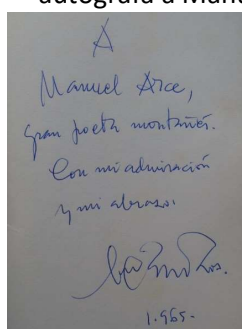 autógrafa a Manu
A
Manuel Arce,
gran poeta montañés.
Con mi admiración
y mi abrazo.
1.965.